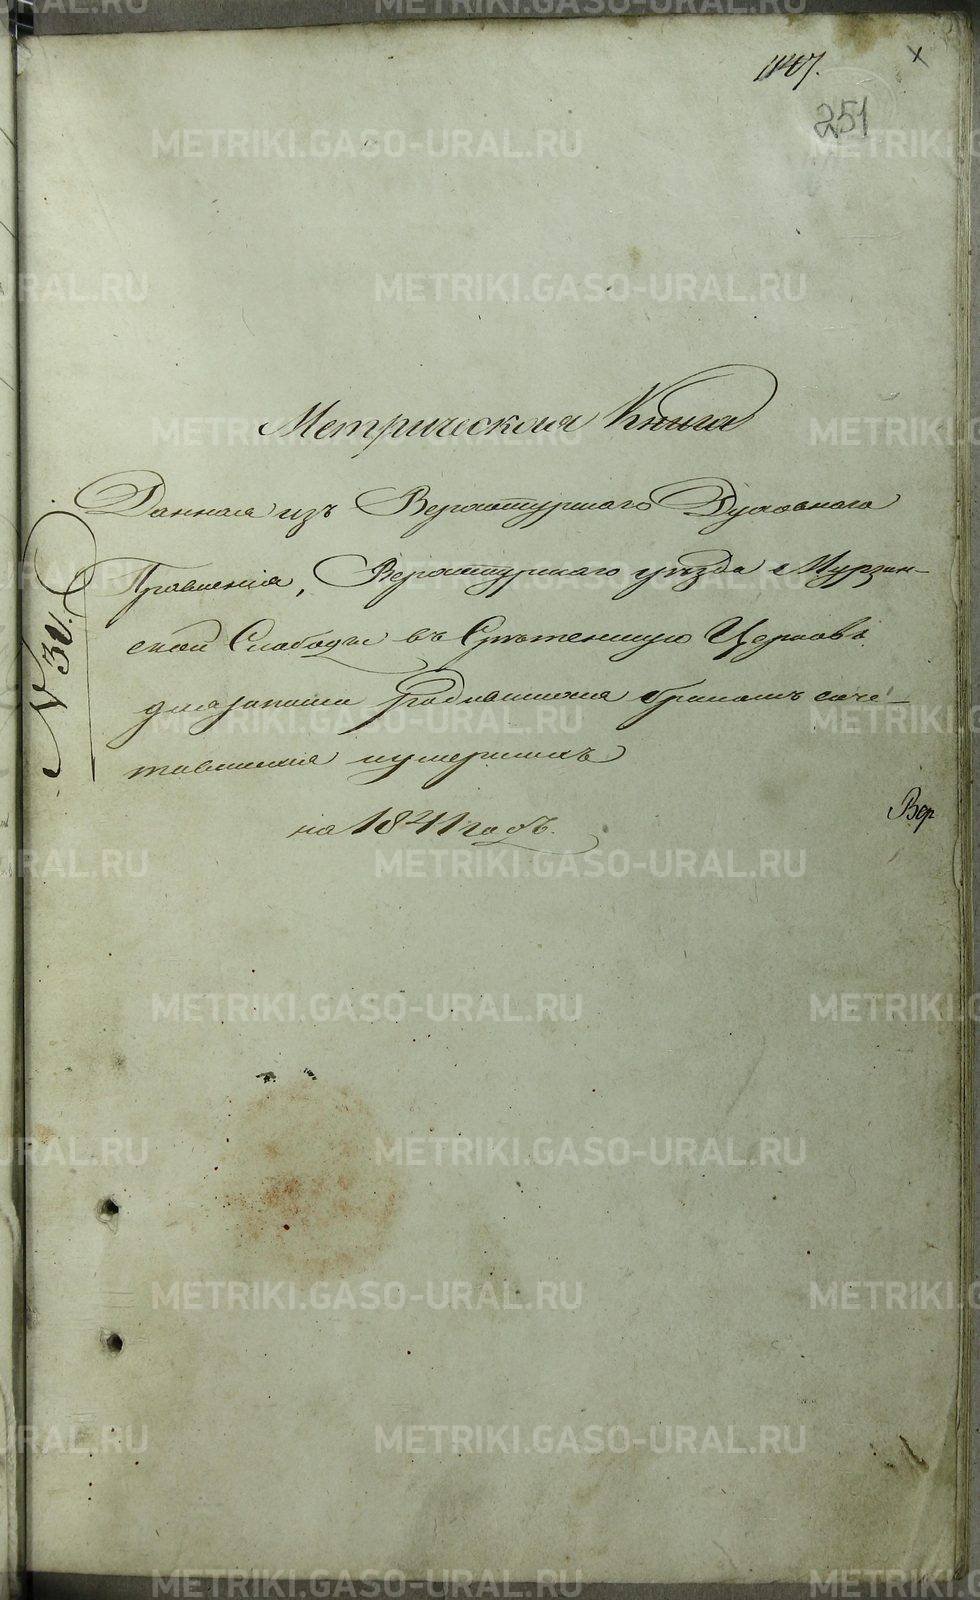 1107.
251
Метрическая Книга
Данная изъ Верхотурскаго Духовнаго
Правленія, Верхотурскаго уѣзда Мурзин-
ской Слободы въ Срѣтенскую Церковь
для записи родившихся бракомъ соче-
тавшихся и умершихъ
на 1841 годъ.
№ 30.
Вер
METRIKI.GASO-URAL.RU